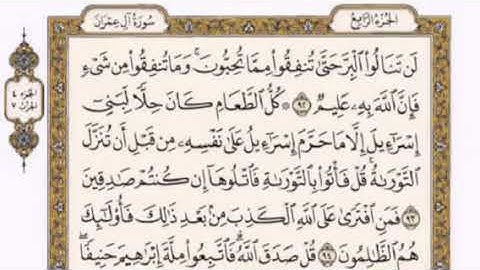 الجزء الرابع
سورة آل عمران
لَن تَنَالُوا۟ ٱلْبِرَّ حَتَّىٰ تُنفِقُوا۟ مِمَّا تُحِبُّونَ ۚ وَمَا تُنفِقُوا۟ مِن شَىْءٍ
فَإِنَّ ٱللَّهَ بِهِۦ عَلِيمٌ ۝٩٢ كُلُّ ٱلطَّعَامِ كَانَ حِلًّا لِّبَنِىٓ
إِسْرَٰٓءِيلَ إِلَّا مَا حَرَّمَ إِسْرَٰٓءِيلُ عَلَىٰ نَفْسِهِۦ مِن قَبْلِ أَن تُنَزَّلَ
ٱلتَّوْرَىٰةُ ۗ قُلْ فَأْتُوا۟ بِٱلتَّوْرَىٰةِ فَٱتْلُوهَآ إِن كُنتُمْ صَٰدِقِينَ
۝٩٣ فَمَنِ ٱفْتَرَىٰ عَلَى ٱللَّهِ ٱلْكَذِبَ مِنۢ بَعْدِ ذَٰلِكَ فَأُو۟لَٰٓئِكَ
هُمُ ٱلظَّٰلِمُونَ ۝٩٤ قُلْ صَدَقَ ٱللَّهُ ۗ فَٱتَّبِعُوا۟ مِلَّةَ إِبْرَٰهِيمَ حَنِيفًا ۖ